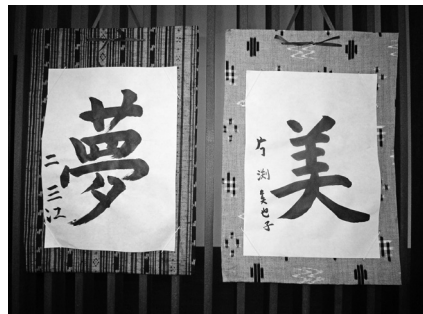 夢
二 三江
美
片渕 美也子